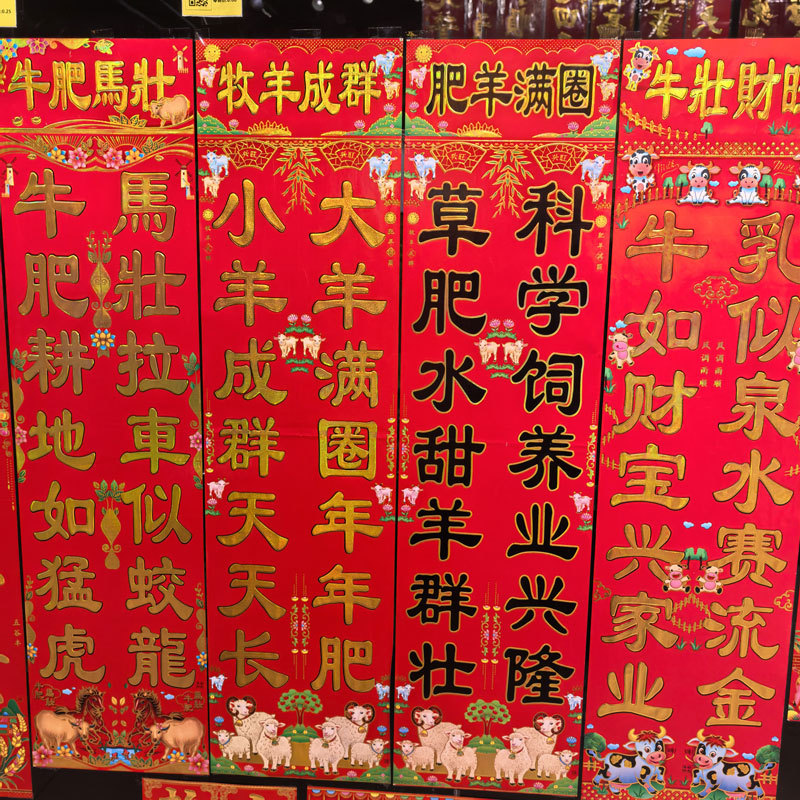 牛肥馬壯
牛肥耕地如猛虎
馬壯拉車似蛟龍
牧羊成群
小羊成群天天长
大羊满圈年年肥
肥羊满圈
草肥水甜羊群壮
科学饲养业兴隆
牛壯財
牛如财宝兴家业
乳似泉水赛流金
风调雨顺
风调雨顺
五谷丰